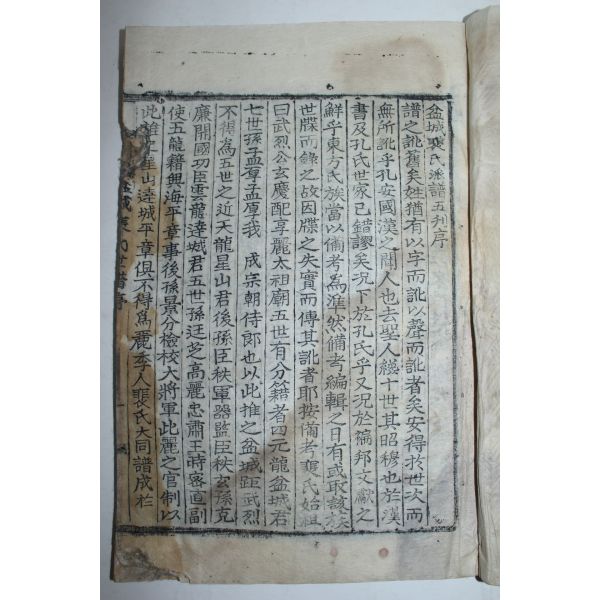 盆城裵氏派譜五刋序
譜之訛舊矣姓猶有以字而訛以聲而訛者矣安得於世次而
無所訛乎孔安國漢之聞人也去聖人纔十世其昭穆也於漢
書及孔氏世家已錯謬矣况下於孔氏乎又况於徧邦文獻之
鮮乎東方氏族當以備考爲準然備考編輯之日有或取該族
世牒而錄之故因牒之失實而傳其訛者耶按備考裵氏始祖
曰武烈公玄慶配享麗太祖廟五世有分籍者四元龍盆城君
七世孫孟享子孟厚我 成宗朝侍郎也以此推之盆城距武烈
不得爲五世之近天龍星山君後孫臣秩軍器監臣秩玄孫克
廉開國功臣雲龍達城君五世孫廷芝高麗忠肅王時密直副
使五龍籍興海平章事後孫景分檢校大將軍此麗之官制以
此推之星山達城平章俱不得爲麗季人裵氏大同譜成於
盆城裵氏世譜序